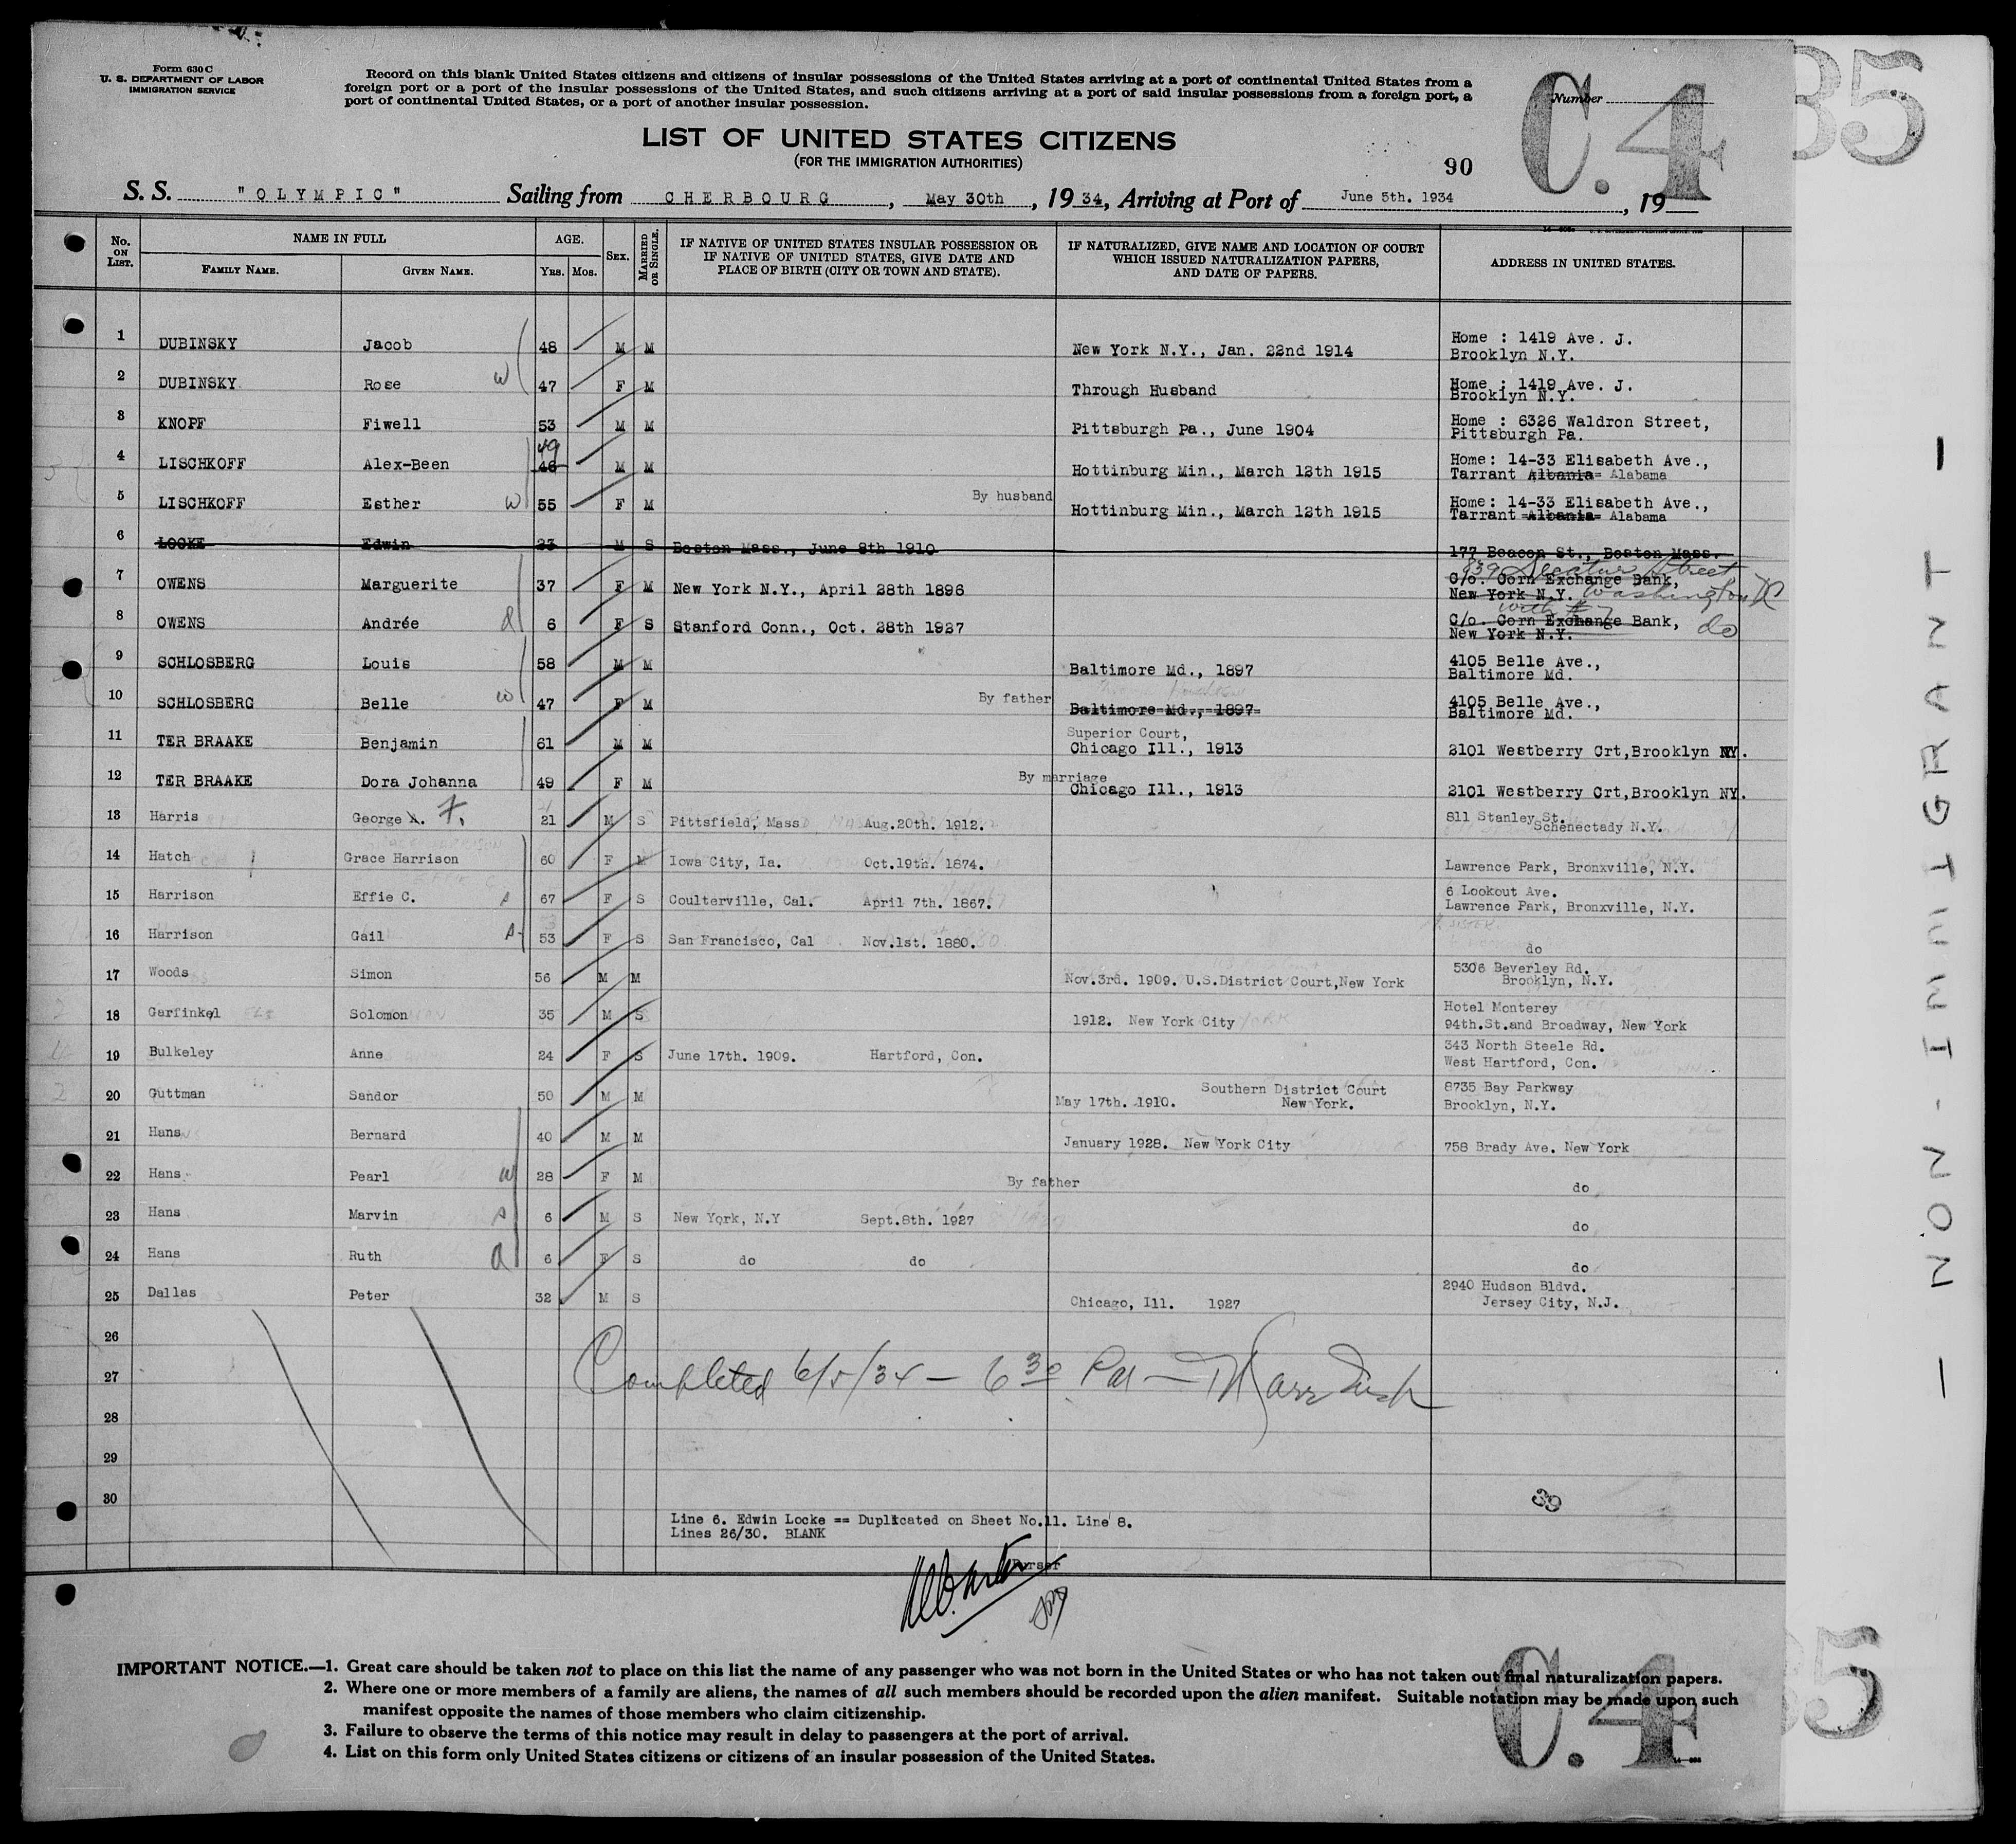 Form 630 C
U. S. DEPARTMENT OF LABOR
IMMIGRATION SERVICE
Record on this blank United States citizens and citizens of insular possessions of the United States arriving at a port of continental United States from a
foreign port or a port of the insular possessions of the United States, and such citizens arriving at a port of said insular possessions from a foreign port, a
port of continental United States, or a port of another insular possession.
Number
C. 4
35
LIST OF UNITED STATES CITIZENS
(FOR THE IMMIGRATION AUTHORITIES)
90
S. S. "OLYMPIC" Sailing from CHERBOURG, May 30th, 1934, Arriving at Port of June 5th. 1934, 19
No. ON LIST. NAME IN FULL FAMILY NAME. GIVEN NAME. AGE. YRS. MOS. SEX. MARRIED OR SINGLE. IF NATIVE OF UNITED STATES INSULAR POSSESSION OR IF NATIVE OF UNITED STATES, GIVE DATE AND PLACE OF BIRTH (CITY OR TOWN AND STATE). IF NATURALIZED, GIVE NAME AND LOCATION OF COURT WHICH ISSUED NATURALIZATION PAPERS, AND DATE OF PAPERS. ADDRESS IN UNITED STATES.
1 DUBINSKY Jacob 48 M M New York N.Y., Jan. 22nd 1914 Home : 1419 Ave. J. Brooklyn N.Y.
2 DUBINSKY Rose w 47 F M Through Husband Home : 1419 Ave. J. Brooklyn N.Y.
3 KNOPF Fiwell 53 M M Pittsburgh Pa., June 1904 Home : 6326 Waldron Street, Pittsburgh Pa.
4 LISCHKOFF Alex-Been 46 49 M M Hottinburg Min., March 12th 1915 Home: 14-33 Elisabeth Ave., Tarrant Albania= Alabama
5 LISCHKOFF Esther w 55 F M By husband Hottinburg Min., March 12th 1915 Home: 14-33 Elisabeth Ave., Tarrant =Albania= Alabama
6 LOCKE Edwin 23 M S Boston Mass., June 8th 1910 177 Beacon St., Boston Mass.
7 OWENS Marguerite 37 F M New York N.Y., April 28th 1896 C/o. Corn Exchange Bank, New York N.Y. 839 Decatur Street Washington DC
8 OWENS Andrée d 6 F S Stanford Conn., Oct. 28th 1927 C/o. Corn Exchange Bank, New York N.Y. with # 7 do
9 SCHLOSBERG Louis 58 M M Baltimore Md., 1897 4105 Belle Ave., Baltimore Md.
10 SCHLOSBERG Belle w 47 F M By father Baltimore Md., 1897= 4105 Belle Ave., Baltimore Md.
11 TER BRAAKE Benjamin 61 M M Superior Court, Chicago Ill., 1913 2101 Westberry Crt,Brooklyn NY.
12 TER BRAAKE Dora Johanna 49 F M By marriage Chicago Ill., 1913 2101 Westberry Crt,Brooklyn NY.
13 Harris George A. F. 21 M S Pittsfield, Mass Aug.20th. 1912. 811 Stanley St. Schenectady N.Y.
14 Hatch Grace Harrison 60 F M Iowa City, Ia. Oct.19th. 1874. Lawrence Park, Bronxville, N.Y.
15 Harrison Effie C. s 67 F S Coulterville, Cal. April 7th. 1867. 6 Lookout Ave. Lawrence Park, Bronxville, N.Y.
16 Harrison Gail s 53 F S San Francisco, Cal Nov.1st. 1880. do
17 Woods Simon 56 M M Nov.3rd. 1909. U.S.District Court,New York 5306 Beverley Rd. Brooklyn, N.Y.
18 Garfinkel Solomon 35 M S 1912. New York City Hotel Monterey 94th.St.and Broadway, New York
19 Bulkeley Anne 24 F S June 17th. 1909. Hartford, Con. 343 North Steele Rd. West Hartford, Con.
20 Guttman Sandor 50 M M May 17th. 1910. Southern District Court New York. 8735 Bay Parkway Brooklyn, N.Y.
21 Hans Bernard 40 M M January 1928. New York City 758 Brady Ave. New York
22 Hans Pearl w 28 F M By father do
23 Hans Marvin s 6 M S New York, N.Y Sept.8th. 1927 do
24 Hans Ruth d 6 F S do do do
25 Dallas Peter 32 M S Chicago, Ill. 1927 2940 Hudson Bldvd. Jersey City, N.J.
26
27 Completed 6/5/34 — 6 30 PM —
28
29
30
Line 6. Edwin Locke == Duplicated on Sheet No.11. Line 8.
Lines 26/30. BLANK
Purser
IMPORTANT NOTICE.—1. Great care should be taken not to place on this list the name of any passenger who was not born in the United States or who has not taken out final naturalization papers.
2. Where one or more members of a family are aliens, the names of all such members should be recorded upon the alien manifest. Suitable notation may be made upon such
manifest opposite the names of those members who claim citizenship.
3. Failure to observe the terms of this notice may result in delay to passengers at the port of arrival.
4. List on this form only United States citizens or citizens of an insular possession of the United States.
C. 4
35
— NON-IMMIGRANT —